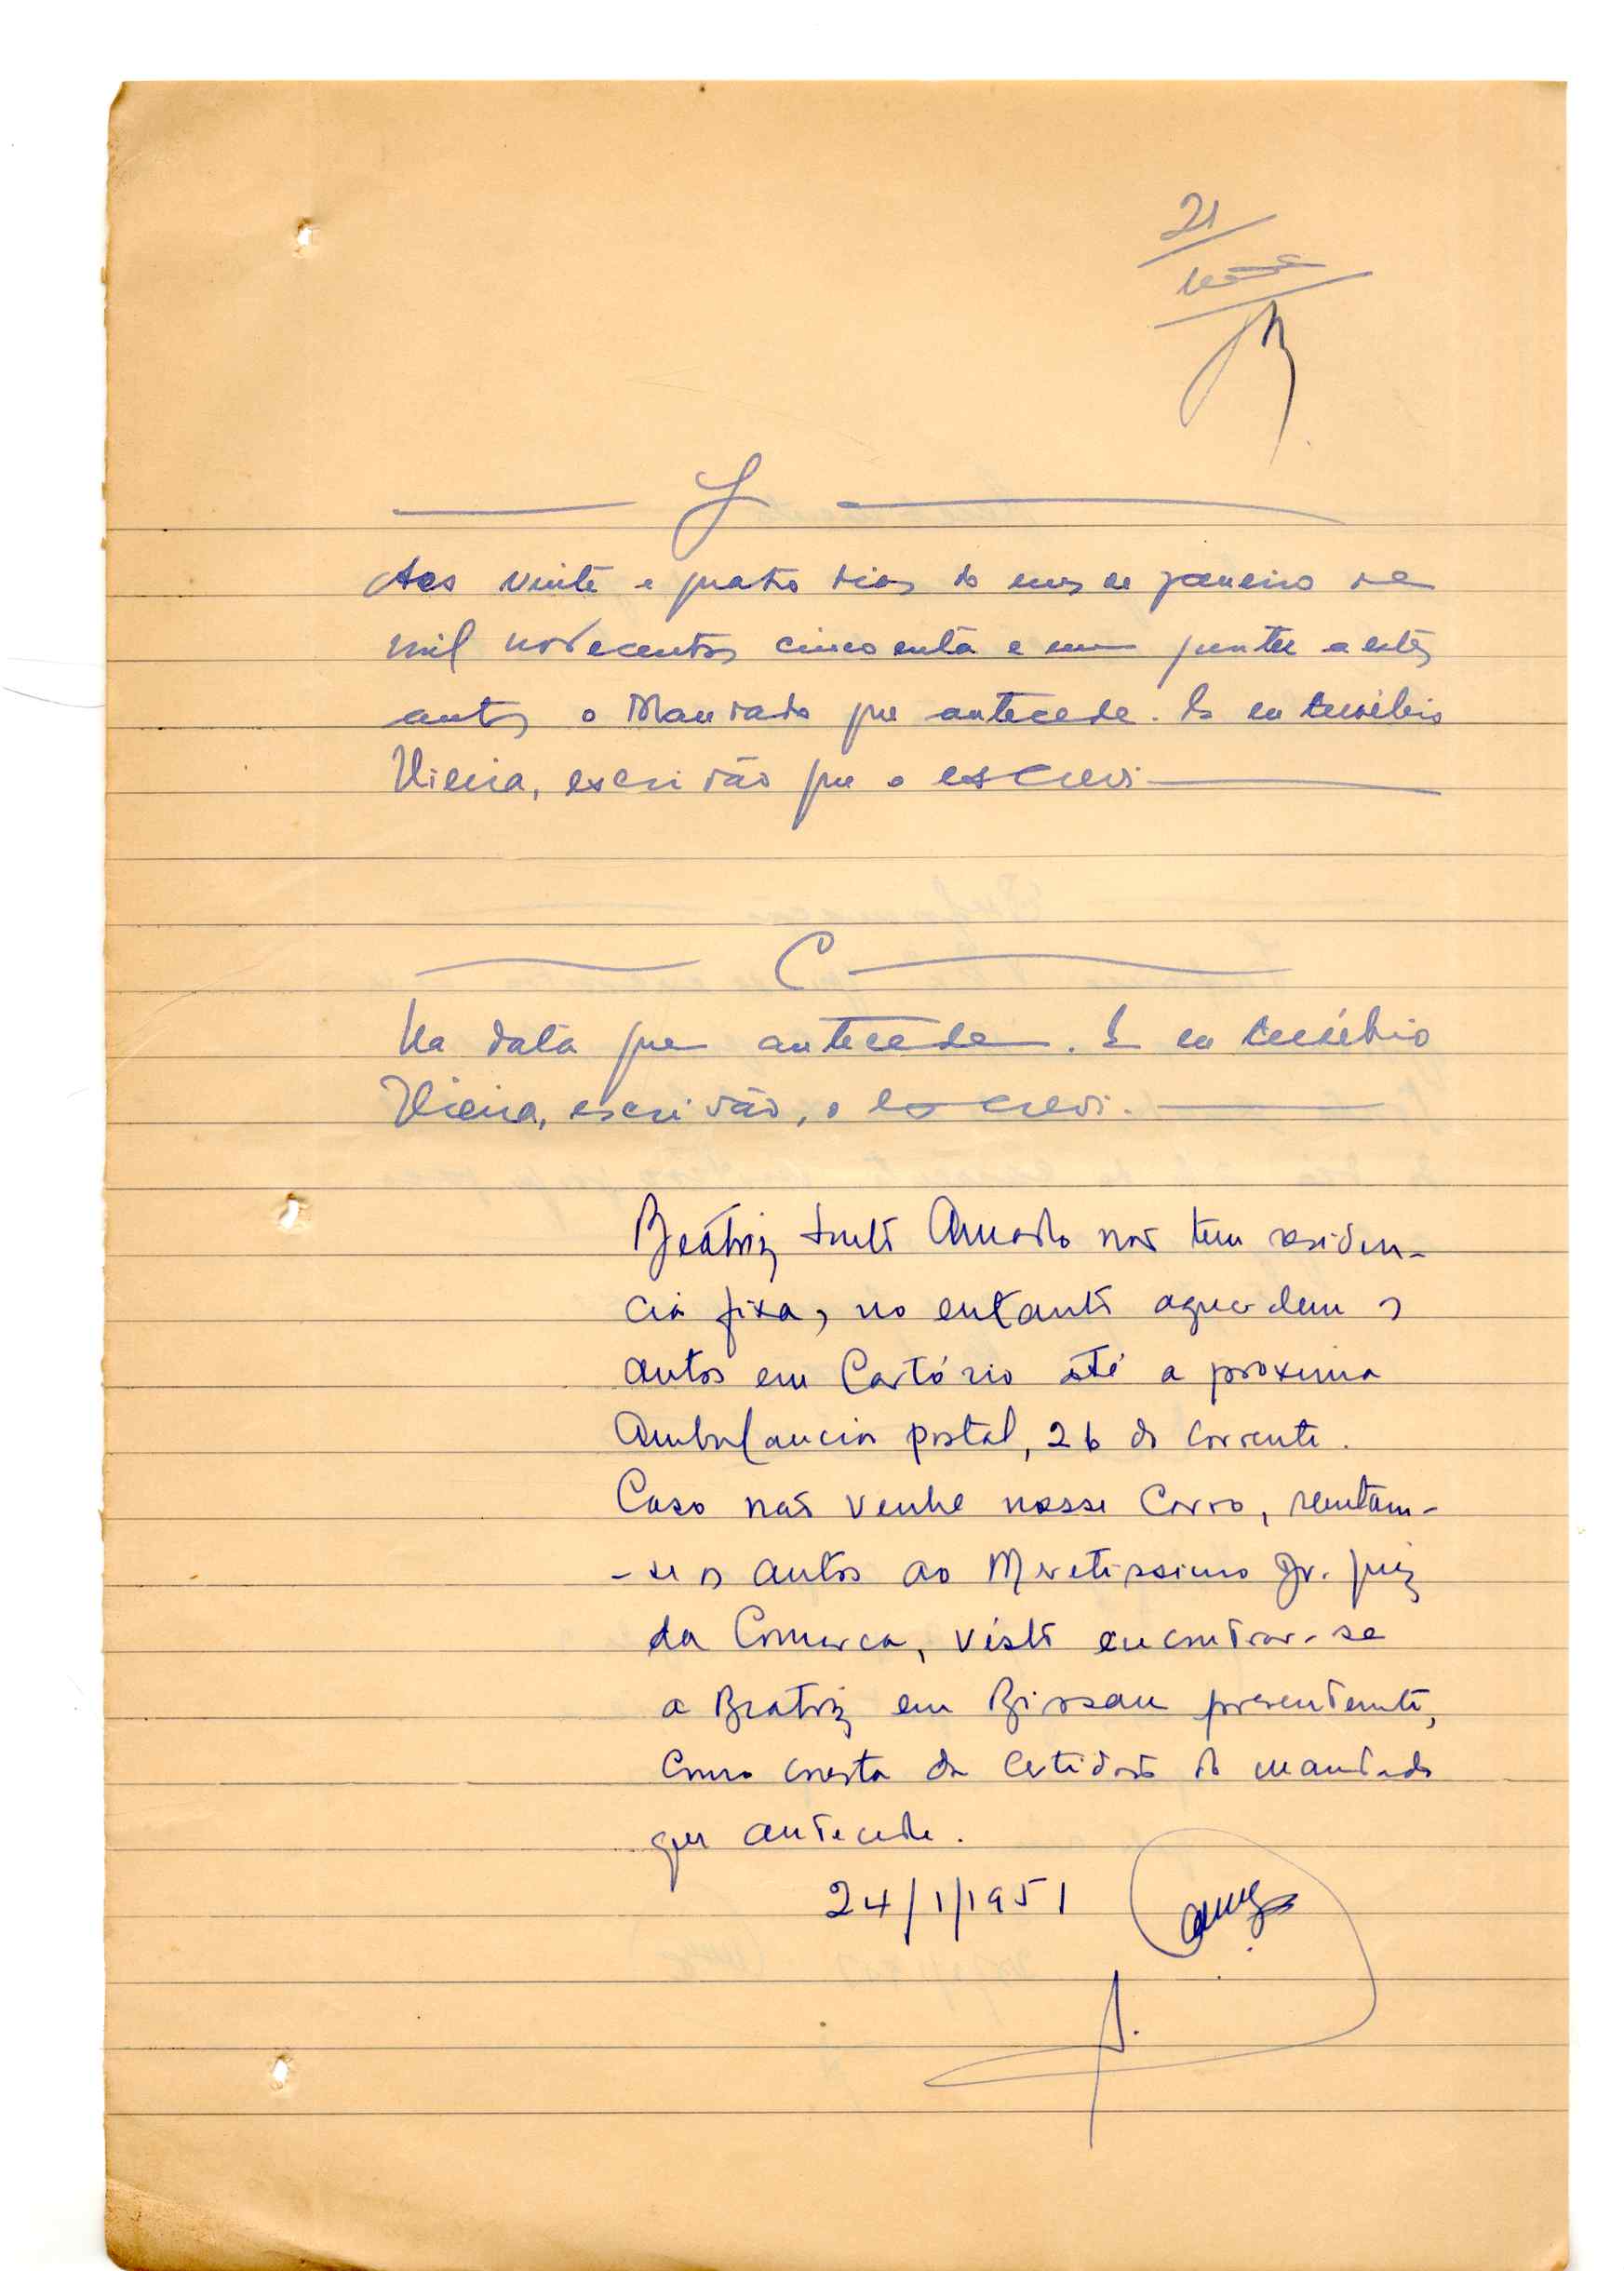 21
J
Aos vinte e quatro dias do mes de janeiro de
mil novecentos cincoenta e um juntei a estes
autos o Mandado que antecede. E eu Eusébio
Vieira, escrivão que o escrevi
C
Na data que antecede. E eu Eusébio
Vieira, escrivão, o escrevi.
Beatriz Amado não tem residen-
cia fixa, no entanto aguardem os
autos em Cartório até a proxima
Ambulancia postal, 26 do corrente.
Caso não venha nesse Carro, remetam-
-se os autos ao Meretissimo Dr. Juiz
da Comarca, visto encontrar-se
a Beatriz em Bissau presentemente,
como consta da Certidão do mandado
que antecede.
24/1/1951